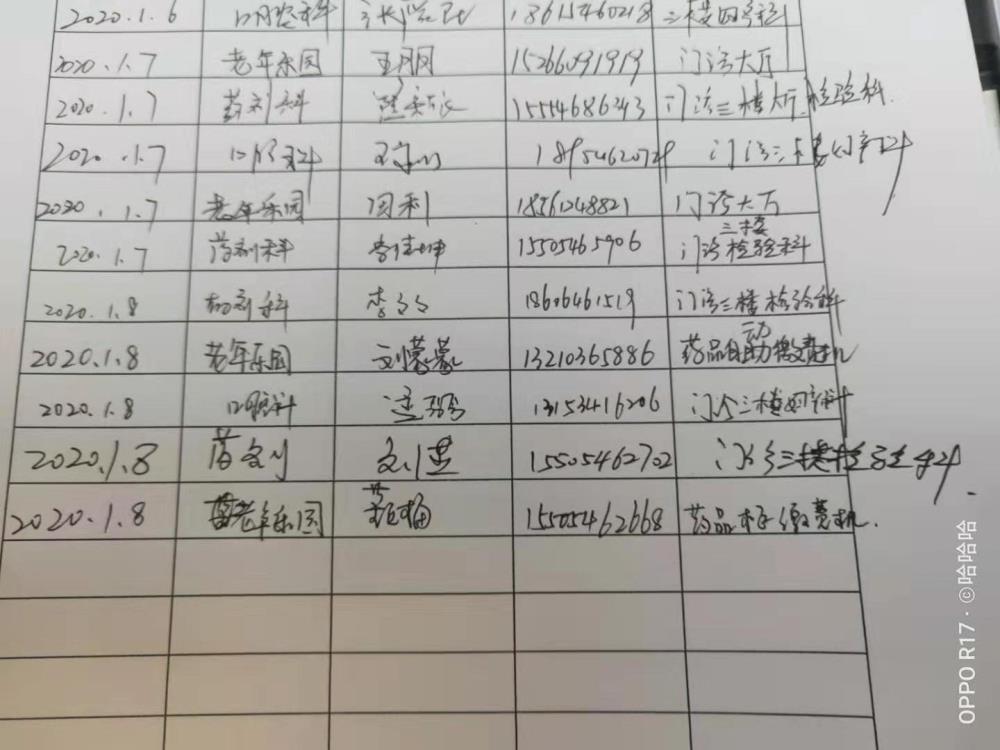 2020.1.6 口腔科 三楼妇产科
2020.1.7 老年乐园 王朋 15266091919 门诊大厅
2020.1.7 药剂科 15554686343 门诊三楼大厅检验科
2020.1.7 口腔科 门诊三楼妇产科
2020.1.7 老年乐园 周利 18561248821 门诊大厅
2020.1.7 药剂科 李佳坤 15505465906 门诊三楼检验科
2020.1.8 药剂科 李 18606461519 门诊三楼检验科
2020.1.8 老年乐园 刘蒙蒙 13210365886 药品自动缴费机
2020.1.8 口腔科 13153416206 门诊三楼妇产科
2020.1.8 药剂 15505462702 门诊三楼检验科
2020.1.8 老年乐园 15505462668 药品 缴费机.
OPPO R17 · ©哈哈哈